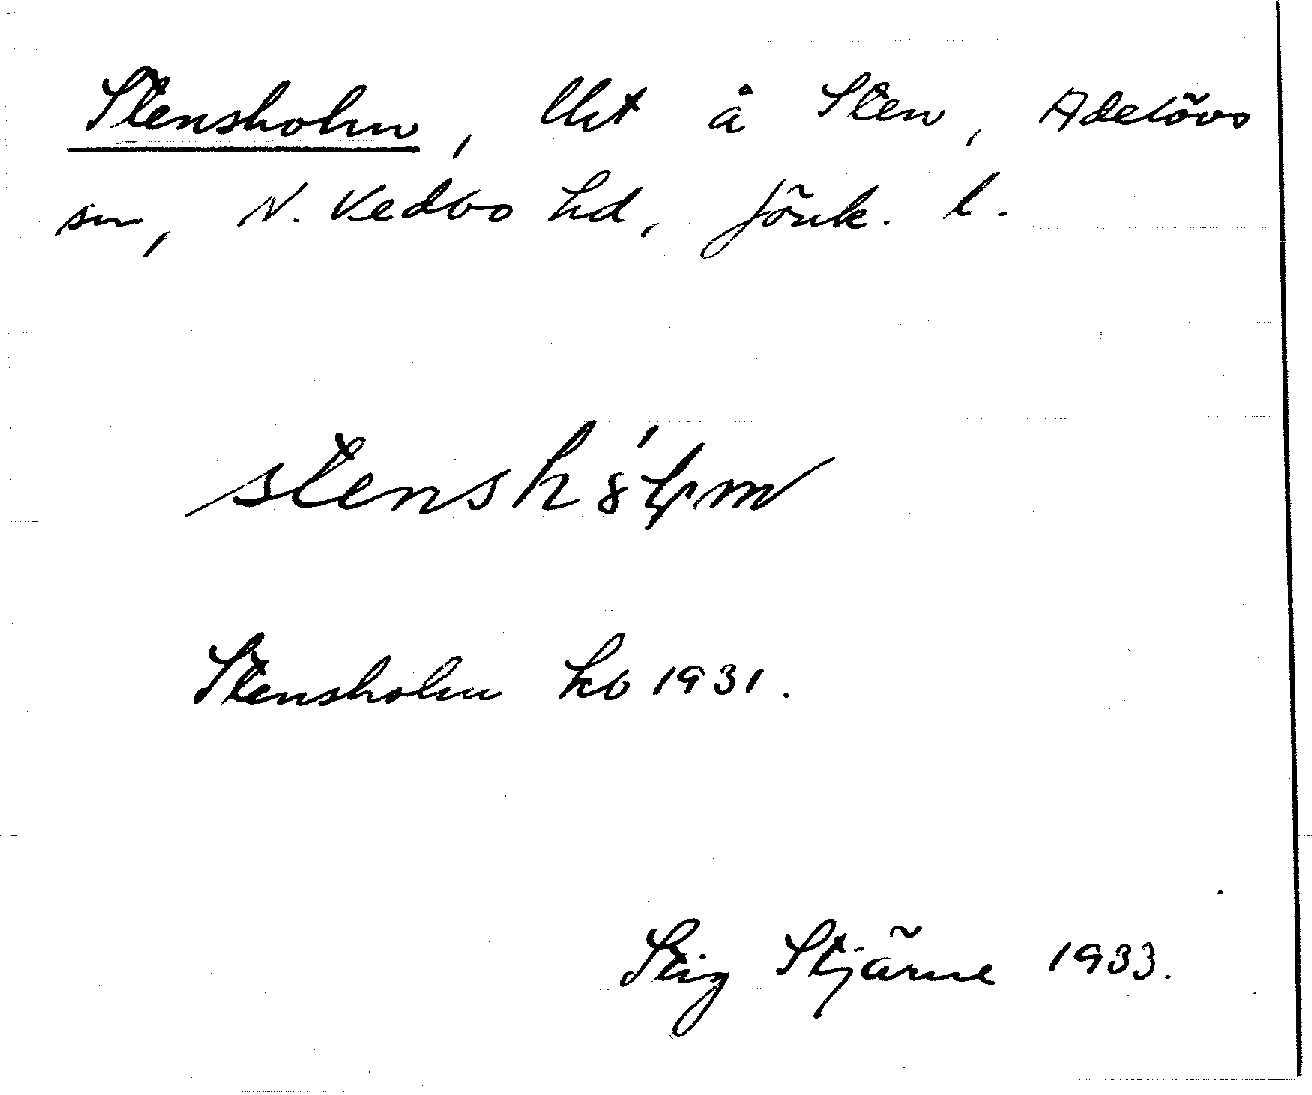 Stensholm, lht å Sten, Adelövs
sn, N. Vedbo hd, Jönk. l.
stenshólm
Stensholm kb 1931.
Stig Stjärne 1933.